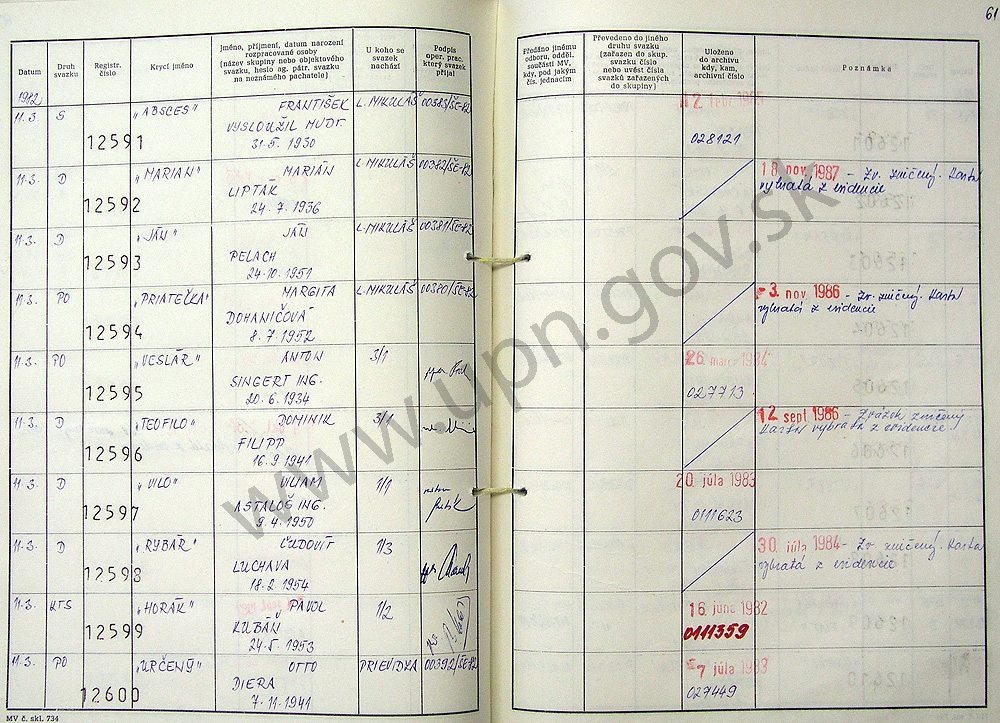 61
Datum
Druh svazku
Registr. číslo
Krycí jméno
jméno, příjmení, datum narození rozpracované osoby (název skupiny nebo objektového svazku, heslo ag. pátr. svazku na neznámého pachatele)
U koho se svazek nachází
Podpis oper. prac. který svazek přijal
Předáno jinému odboru, odděl. součásti MV, kdy, pod jakým čís. jednacím
Převedeno do jiného druhu svazku (zařazen do skup. svazku číslo nebo uvést čísla svazků zařazených do skupiny)
Uloženo do archivu kdy, kam, archivní číslo
Poznámka
1982
11.3. S 12591 „ABSCES" FRANTIŠEK L. MIKULÁŠ 00383/ŠE-82
VYSLOUŽIL MUDr.
31.5. 1930
028121
11.3. D 12592 „MARIAN" MARIÁN L. MIKULÁŠ 00382/ŠE-82
LIPTÁK
24. 7. 1936
18 nov. 1987 - Zv. zničený. Karta
vybratá z evidencie
11.3. D 12593 „JÁN" JÁN L. MIKULÁŠ 00381/ŠE-82
PELACH
24.10.1951
11.3. PO 12594 „PRIATEĽKA" MARGITA L. MIKULÁŠ 00380/ŠE-82
DOHANIČOVÁ
8. 7. 1952
-3. nov. 1986 - Zv. zničený. Karta
vybratá z evidencie
11.3. PO 12595 „VESLÁR" ANTON 3/1
SINGERT ING.
20. 6. 1934
26. marca 1984
027713
11.3. D 12596 „TEOFILO" DOMINIK 3/1
FILIPP
16. 9 1941
12. sept 1986 - Zväzok zničený
Karta vybratá z evidencie.
11.3. D 12597 „VILO" VILIAM 1/1
ASTALOŠ ING.
9. 4. 1950
20. júla 1983
0111623
11.3. D 12598 „RYBÁR" ĽUDOVÍT 1/3
LUCHAVA
18.2 1954
30. júla 1984 - Zv. zničený. Karta
vybratá z evidencie
11.3. KTS 12599 „HORÁK" PAVOL 1/2
KUBÁŇ
24.5. 1953
16. júna 1982
0111359
11.3. PO 12600 „URČENÝ" OTTO PRIEVIDZA 00392/ŠE-82
DIERA
7. 11. 1941
-7 júla 1983
027449
MV č. skl. 734
www.upn.gov.sk